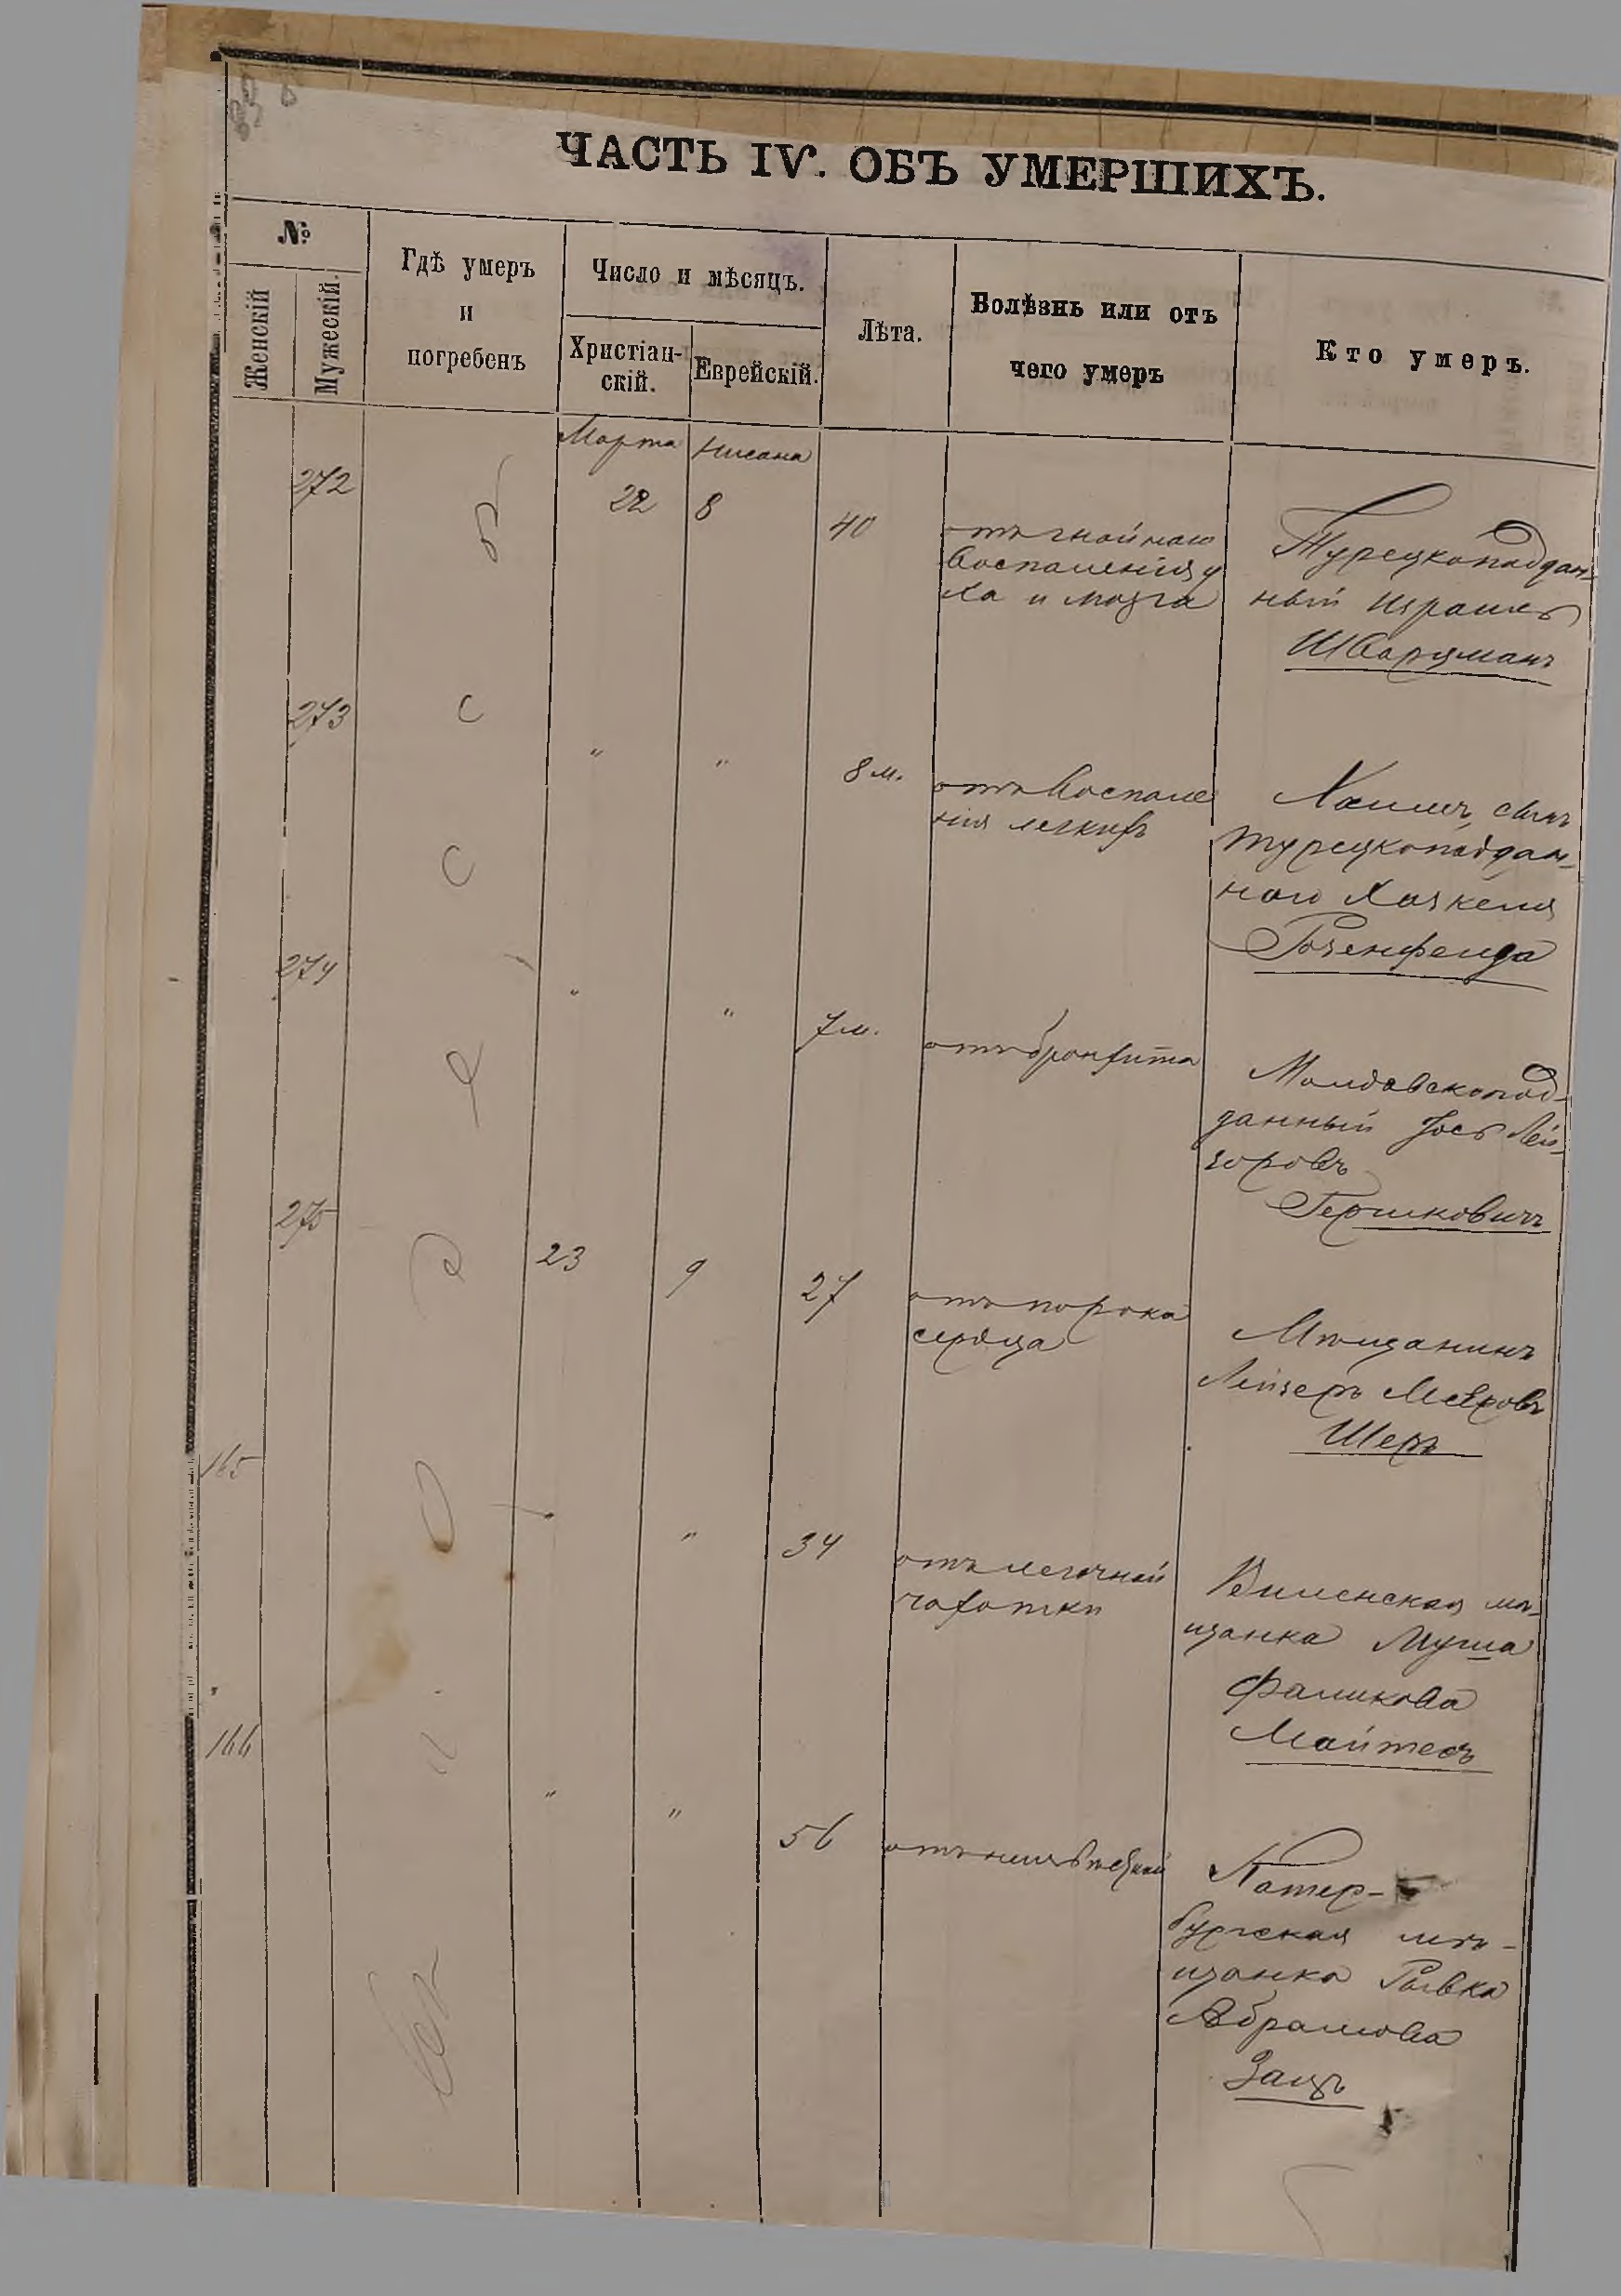 ЧАСТЬ IV. ОБЪ УМЕРШИХЪ.
№
Женскій
Мужескій.
Гдѣ умеръ
и
погребенъ
Число и мѣсяцъ.
Христіан-
скій.
Еврейскій.
Лѣта.
Болѣзнь или отъ
чего умеръ
Кто умеръ.
Марта Нисана
272 22 8 40
отъ гнойнаго
воспаленія у
ха и мозга
Турецкоподдан-
ный Израиль
Шварцманъ
273 " " 8 м.
отъ воспале
нія легкихъ
Хаимъ, сынъ
турецкоподдан-
наго Хаскеля
Розенфельда
274 " " 7 м.
отъ бронхита
Молдавскопод-
данный Іось Лей-
зоровъ
Гершковичъ
275 23 9 27
отъ порока
сердца
Мѣщанинъ
Лейзеръ Меѣровъ
Шеръ
165 " 34
отъ легочной
чахотки
Виленская мѣ-
щанка Муша
Фаликова
Майтесъ
166 " " 56
Петер-
бургская мѣ-
щанка Ривка
Абрамова
Зацъ
въ Одессѣ